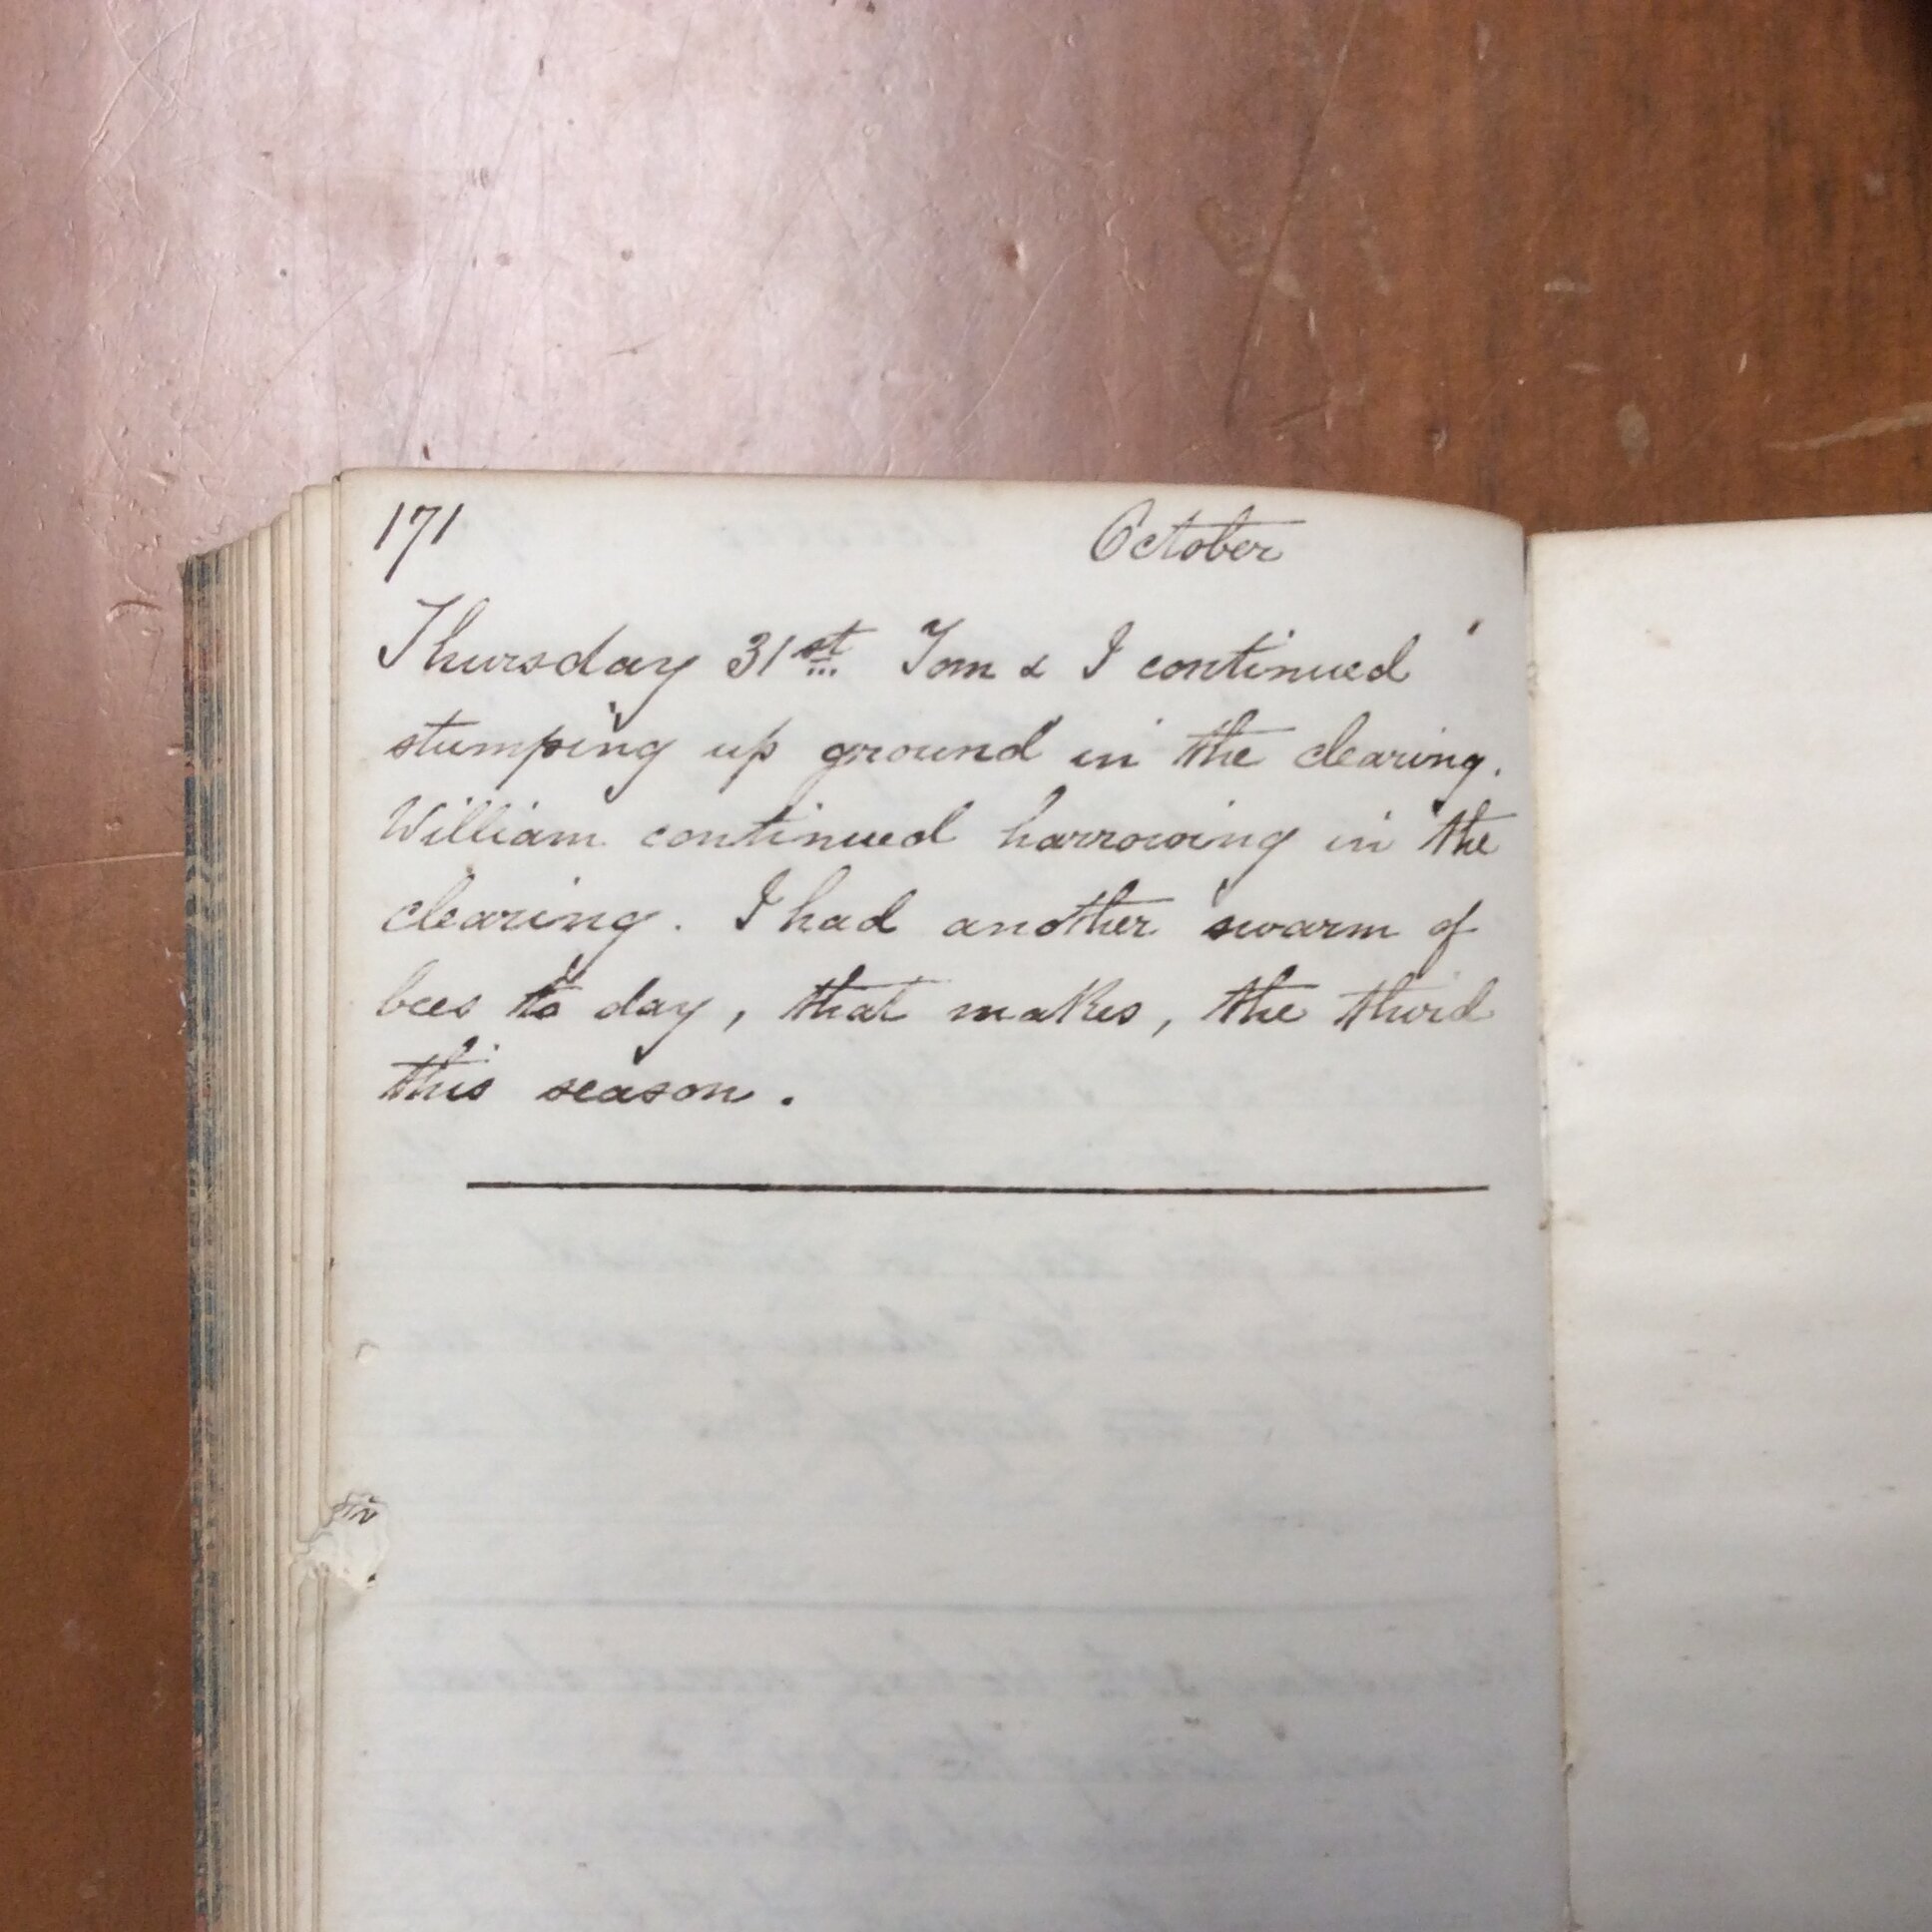 171 October
Thursday 31st Tom & I continued
stumping up ground in the clearing.
William continued harrowing in the
clearing. I had another swarm of
bees to day, that makes, the third
this season.